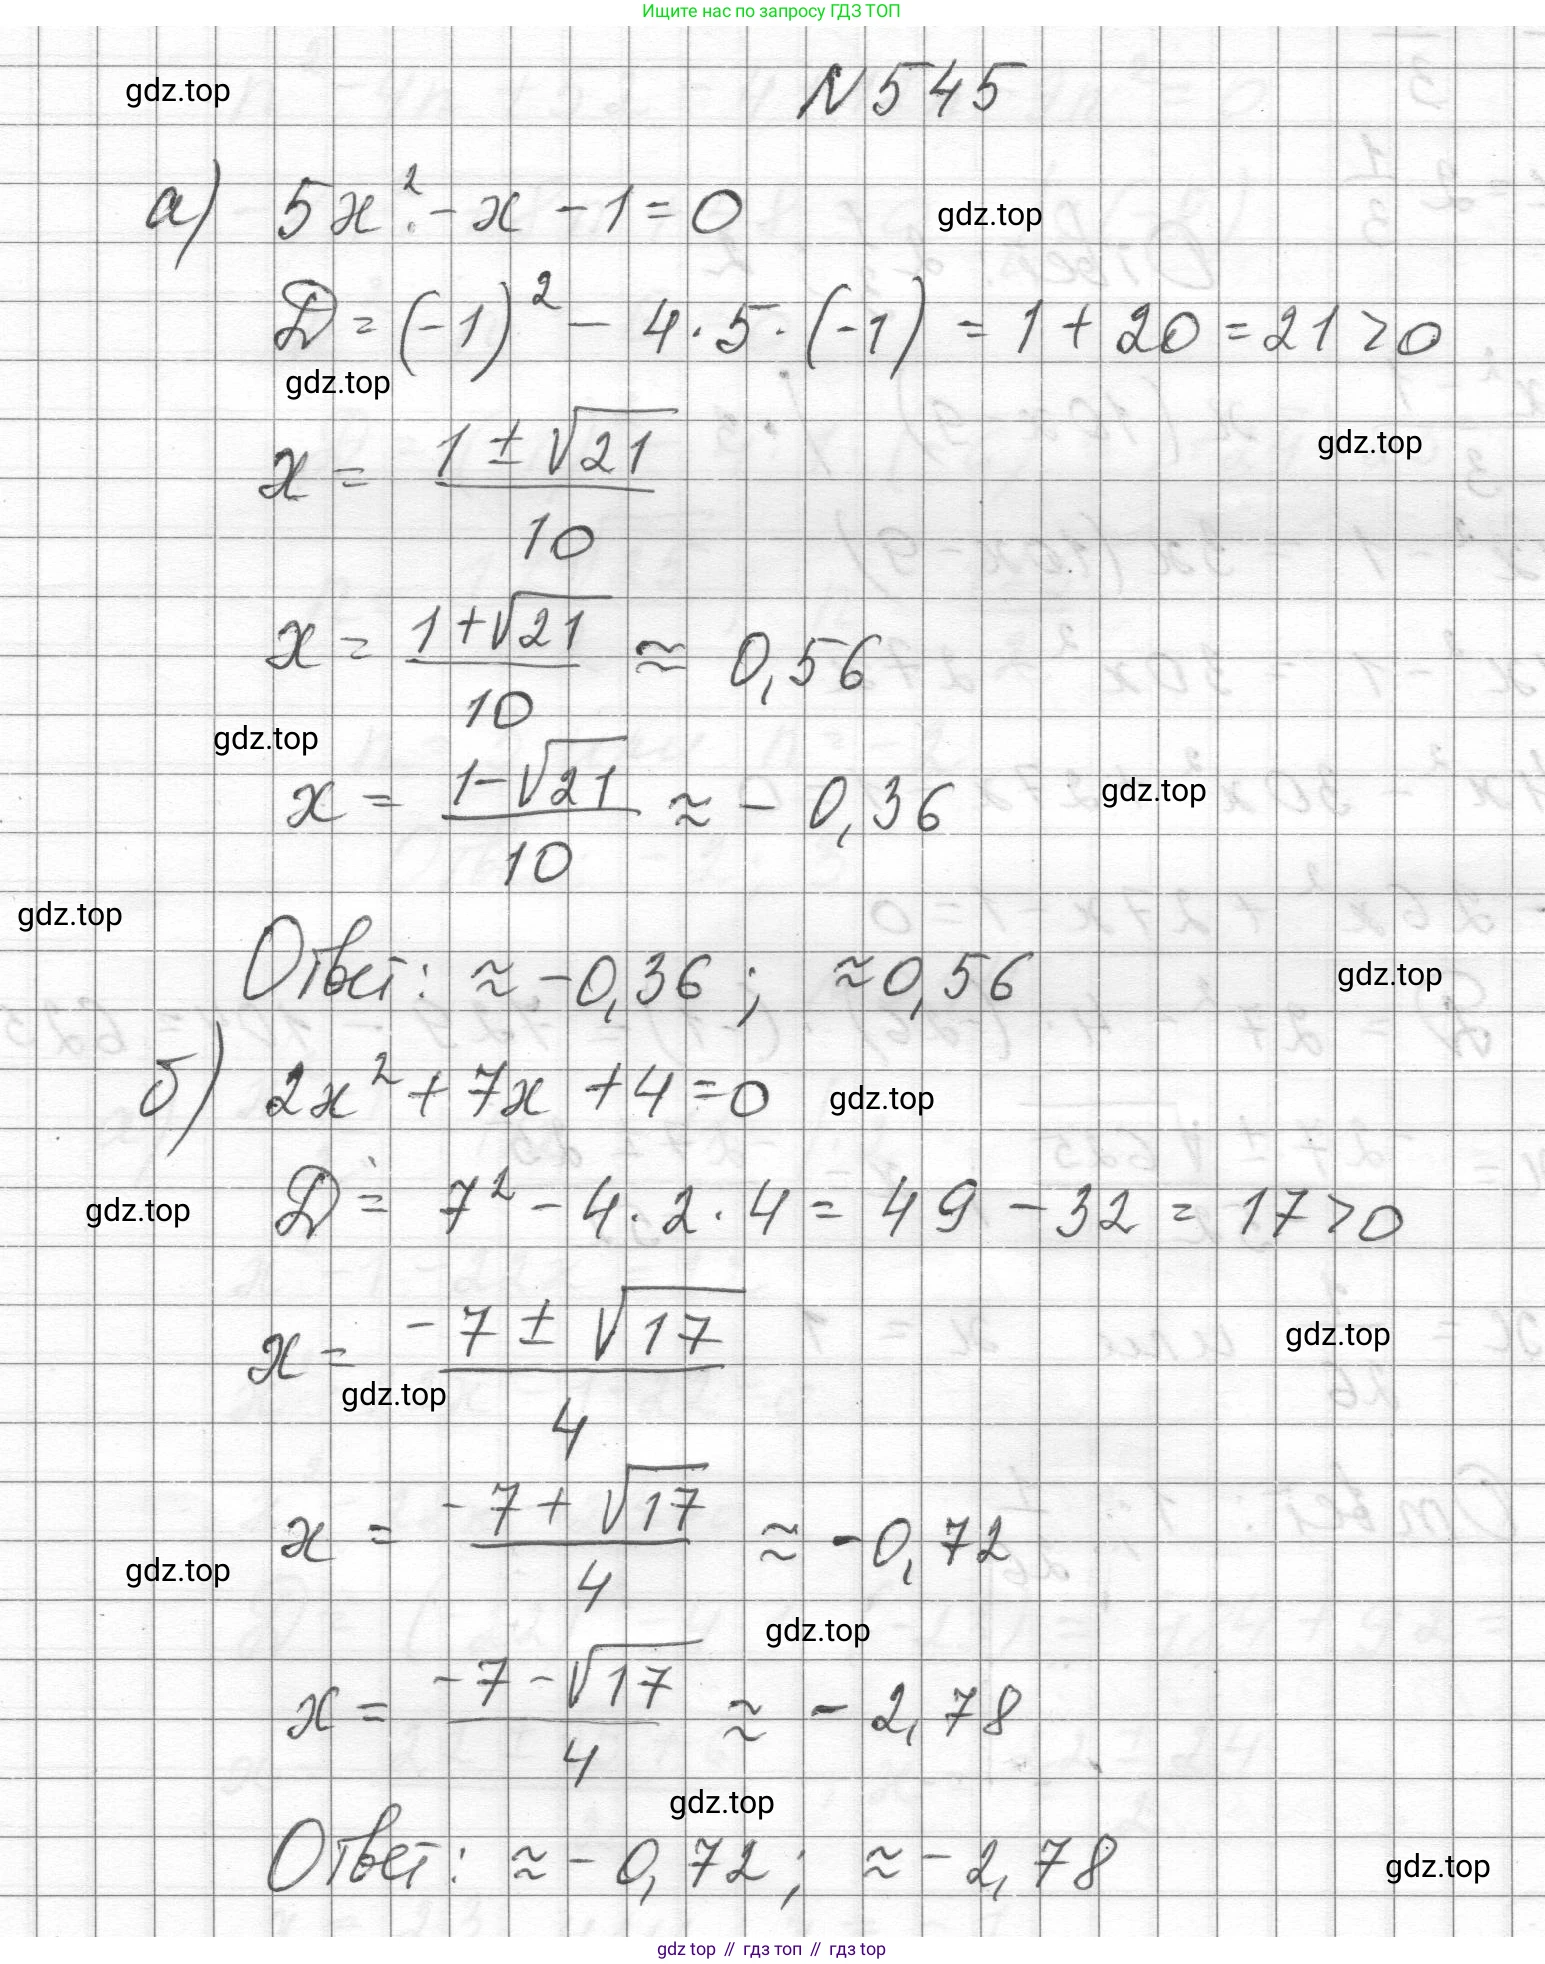 Ищите нас по запросу ГДЗ ТОП
gdz.top
N 545
а) 5x² - x - 1 = 0
gdz.top
D = (-1)² - 4 · 5 · (-1) = 1 + 20 = 21 > 0
gdz.top
gdz.top
x = (1 ± √21) / 10
x = (1 + √21) / 10 ≈ 0,56
gdz.top
gdz.top
x = (1 - √21) / 10 ≈ - 0,36
gdz.top
Ответ: ≈ - 0,36 ; ≈ 0,56
gdz.top
б) 2x² + 7x + 4 = 0
gdz.top
D = 7² - 4 · 2 · 4 = 49 - 32 = 17 > 0
gdz.top
x = (-7 ± √17) / 4
gdz.top
gdz.top
x = (-7 + √17) / 4 ≈ - 0,72
gdz.top
gdz.top
x = (-7 - √17) / 4 ≈ - 2,78
gdz.top
Ответ: ≈ - 0,72 ; ≈ - 2,78
gdz.top
gdz top // гдз топ // gdz.top